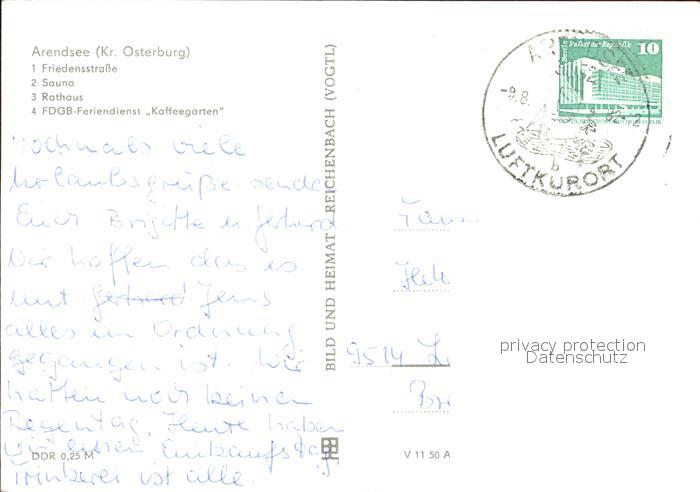 Arendsee (Kr. Osterburg)
1 Friedensstraße
2 Sauna
3 Rathaus
4 FDGB-Feriendienst „Kaffeegarten"
Nochmals viele
Urlaubsgrüße sendet
Euch Brigitte u. Gerhard
Wir hoffen das es
mit Gerhard Jens
alles in Ordnung
gegangen ist. Wir
hatten noch keinen
Regentag. Heute haben
wir einen Einkaufstag,
Trinkerei ist alle.
DDR 0,25 M
BILD UND HEIMAT REICHENBACH (VOGTL)
V 11 50 A
Berlin Palast der Republik 10
ARENDSEE
-8.8.82-12
b
LUFTKURORT
Fam
9514
privacy protection
Datenschutz